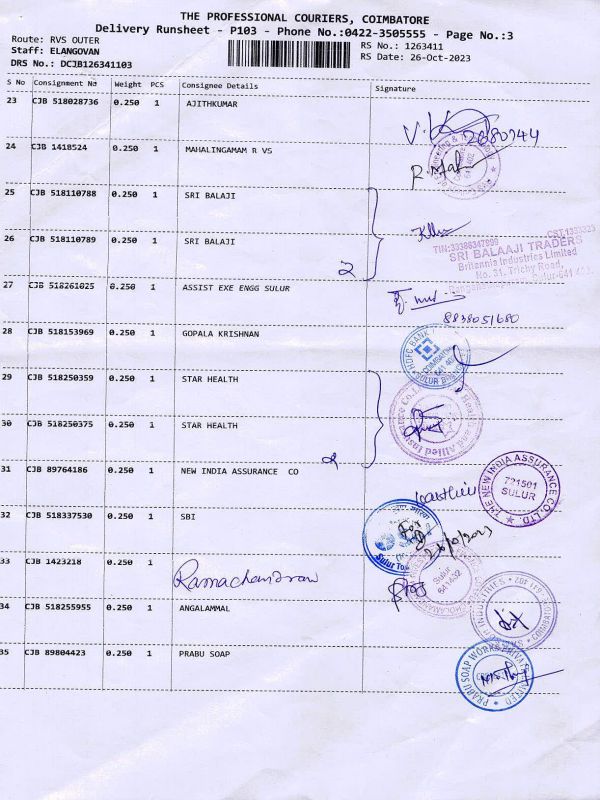 THE PROFESSIONAL COURIERS, COIMBATORE
Delivery Runsheet - P103 - Phone No.:0422-3505555 - Page No.:3
Route: RVS OUTER
RS No.: 1263411
Staff: ELANGOVAN
RS Date: 26-Oct-2023
DRS No.: DCJB126341103
S No Consignment No Weight PCS Consignee Details Signature
23 CJB 518028736 0.250 1 AJITHKUMAR
24 CJB 1418524 0.250 1 MAHALINGAMAM R VS
25 CJB 518110788 0.250 1 SRI BALAJI
26 CJB 518110789 0.250 1 SRI BALAJI
2
TIN:33386347999 CST:1333323
SRI BALAAJI TRADERS
Britannia Industries Limited
No. 31, Trichy Road,
27 CJB 518261025 0.250 1 ASSIST EXE ENGG SULUR
8838051680
28 CJB 518153969 0.250 1 GOPALA KRISHNAN
HDFC BANK
COIMBATORE
SULUR BRANCH
29 CJB 518250359 0.250 1 STAR HEALTH
Star Health and Allied Insurance Co.
30 CJB 518250375 0.250 1 STAR HEALTH
2
31 CJB 89764186 0.250 1 NEW INDIA ASSURANCE CO
THE NEW INDIA ASSURANCE CO. LTD.
721501
SULUR
32 CJB 518337530 0.250 1 SBI
For
26/10/2023
33 CJB 1423218 0.250 1 Ramachandran
Sulur
34 CJB 518255955 0.250 1 ANGALAMMAL
INDUSTRIES
COIMBATORE
35 CJB 89804423 0.250 1 PRABU SOAP
PRABU SOAP WORKS PRIVATE LIMITED